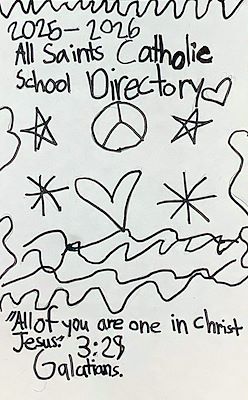 2025-2026
All Saints Catholic
School Directory
"All of you are one in Christ
Jesus." 3:28
Galatians.